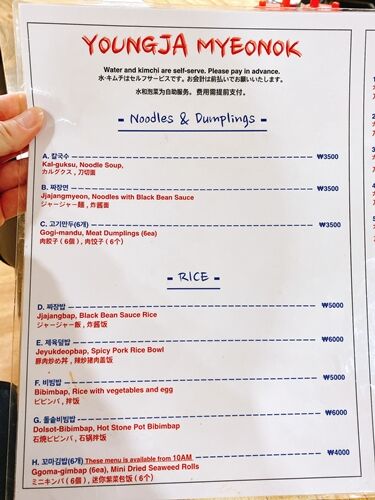 YOUNGJA MYEONOK
Water and kimchi are self-serve. Please pay in advance.
水·キムチはセルフサービスです。お会計は前払いでお願いいたします。
水和泡菜为自助服务。 费用需提前支付。
- Noodles & Dumplings -
A. 칼국수 ₩3500
Kal-guksu, Noodle Soup,
カルグクス , 刀切面
B. 짜장면 ₩3500
Jjajangmyeon, Noodles with Black Bean Sauce
ジャージャー麺 , 炸酱面
C. 고기만두(6개) ₩3500
Gogi-mandu, Meat Dumplings (6ea)
肉餃子 ( 6個 ) , 肉饺子 ( 6个 )
- RICE -
D. 짜장밥 ₩5000
Jjajangbap, Black Bean Sauce Rice
ジャージャー飯 , 炸酱饭
E. 제육덮밥 ₩6000
Jeyukdeopbap, Spicy Pork Rice Bowl
豚肉炒め丼 , 辣炒猪肉盖饭
F. 비빔밥 ₩5000
Bibimbap, Rice with vegetables and egg
ビビンバ , 拌饭
G. 돌솥비빔밥 ₩6000
Dolsot-Bibimbap, Hot Stone Pot Bibimbap
石焼ビビンバ , 石锅拌饭
H. 꼬마김밥(6개) These menu is available from 10AM ₩4000
Ggoma-gimbap (6ea), Mini Dried Seaweed Rolls
ミニキンパ ( 6個 ) , 迷你紫菜包饭 ( 6个 )